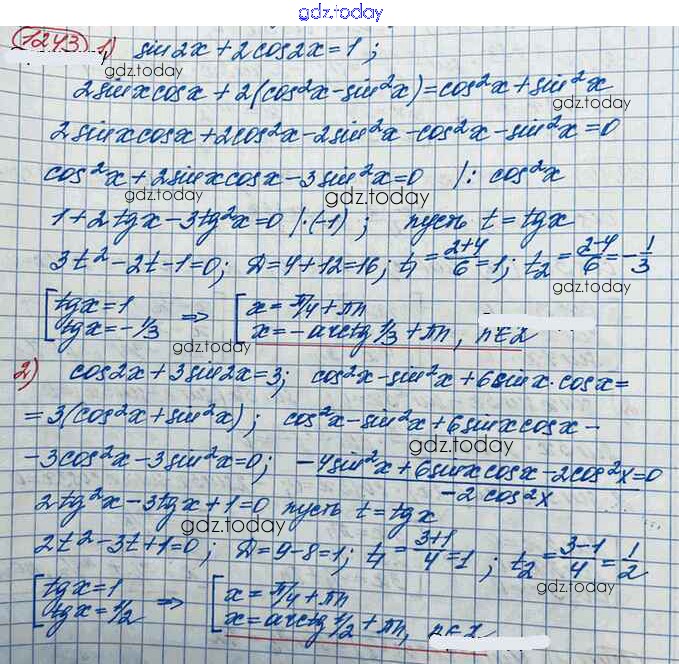 gdz.today
1243 1) sin2x + 2cos2x = 1 ;
gdz.today
2sinxcosx + 2(cos²x - sin²x) = cos²x + sin²x
gdz.today
2sinxcosx + 2cos²x - 2sin²x - cos²x - sin²x = 0
cos²x + 2sinxcosx - 3sin²x = 0 /: cos²x
gdz.today gdz.today
1 + 2tgx - 3tg²x = 0 |·(-1) ; пусть t = tgx
3t² - 2t - 1 = 0; D = 4 + 12 = 16; t₁ = (2+4)/6 = 1; t₂ = (2-4)/6 = -1/3
gdz.today gdz.today
[tgx = 1 => [x = π/4 + πn
[tgx = -1/3 [x = -arctg 1/3 + πn, n∈Z
gdz.today
2) cos2x + 3sin2x = 3; cos²x - sin²x + 6sinx·cosx =
= 3(cos²x + sin²x); cos²x - sin²x + 6sinxcosx -
gdz.today gdz.today
- 3cos²x - 3sin²x = 0; (-4sin²x + 6sinxcosx - 2cos²x = 0)/(-2cos²x)
2tg²x - 3tgx + 1 = 0 пусть t = tgx
gdz.today
2t² - 3t + 1 = 0; D = 9 - 8 = 1; t₁ = (3+1)/4 = 1; t₂ = (3-1)/4 = 1/2
gdz.today
[tgx = 1 => [x = π/4 + πn
[tgx = 1/2 [x = arctg 1/2 + πn, n∈Z
gdz.today